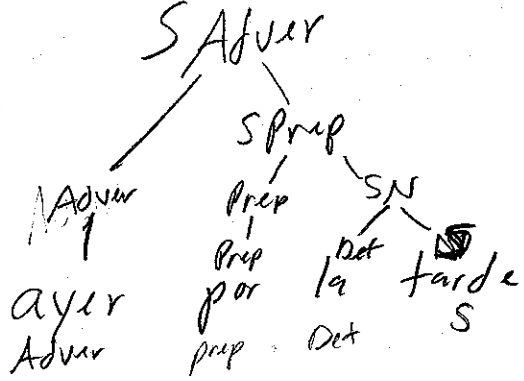 S Adver
S Prep
Adver Prep SN
Prep Det N
ayer por la tarde
Adver prep Det S